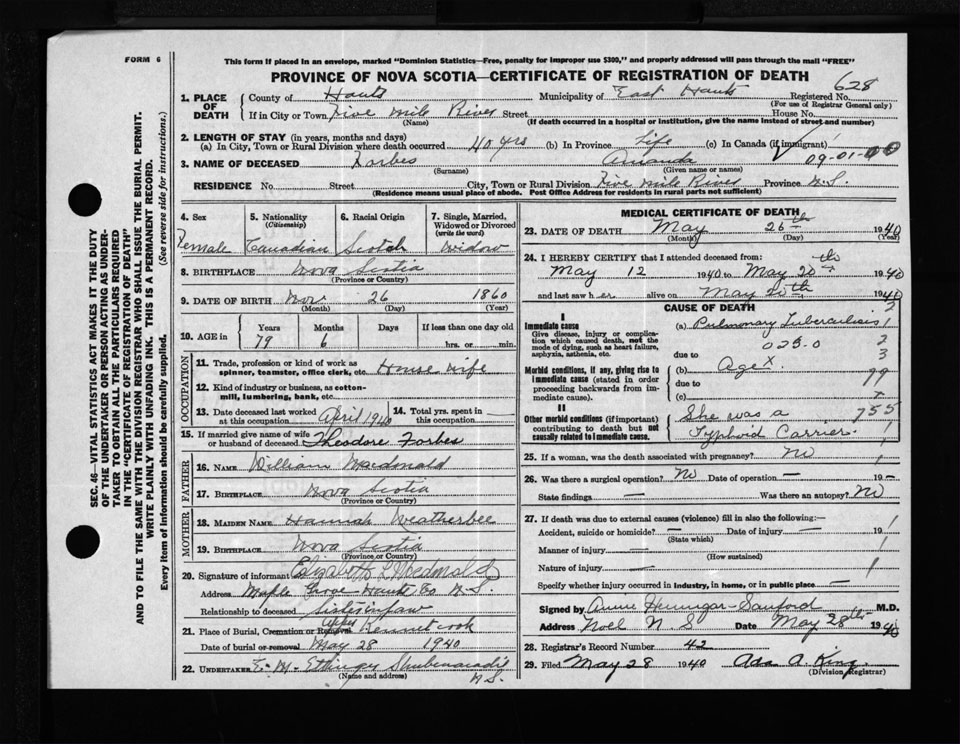 FORM 6
This form if placed in an envelope, marked "Dominion Statistics—Free, penalty for improper use $300," and properly addressed will pass through the mail "FREE"
PROVINCE OF NOVA SCOTIA—CERTIFICATE OF REGISTRATION OF DEATH
628
1. PLACE OF DEATH
County of Hants Municipality of East Hants Registered No.
(For use of Registrar General only)
If in City or Town Five Mile River Street House No.
(Name) (If death occurred in a hospital or institution, give the name instead of street and number)
2. LENGTH OF STAY (in years, months and days)
(a) In City, Town or Rural Division where death occurred 40 yrs (b) In Province Life (c) In Canada (if immigrant)
09-01-00
3. NAME OF DECEASED Forbes Amanda
(Surname) (Given name or names)
RESIDENCE No. Street City, Town or Rural Division Five Mile River Province N.S.
(Residence means usual place of abode. Post Office Address for residents in rural parts not sufficient)
4. Sex 5. Nationality (Citizenship) 6. Racial Origin 7. Single, Married, Widowed or Divorced (write the word)
Female Canadian Scotch Widow
8. BIRTHPLACE Nova Scotia
(Province or Country)
9. DATE OF BIRTH Nov 26 1860
(Month) (Day) (Year)
10. AGE in Years Months Days If less than one day old
79 6 hrs. or min.
OCCUPATION
11. Trade, profession or kind of work as spinner, teamster, office clerk, etc. House wife
12. Kind of industry or business, as cotton-mill, lumbering, bank, etc.
13. Date deceased last worked at this occupation April 1940 14. Total yrs. spent in this occupation
15. If married give name of wife or husband of deceased Theodore Forbes
FATHER
16. NAME William Macdonald
17. BIRTHPLACE Nova Scotia
(Province or Country)
MOTHER
18. MAIDEN NAME Hannah Weatherbee
19. BIRTHPLACE Nova Scotia
(Province or Country)
20. Signature of informant Elizabeth L Macdonald
Address Maple Grove Hants Co N.S.
Relationship to deceased Sister in law
21. Place of Burial, Cremation or Removal Upper Kennetcook
Date of burial or removal May 28 1940
22. UNDERTAKER E. M. Ettinger Shubenacadie
(Name and address) N.S.
MEDICAL CERTIFICATE OF DEATH
23. DATE OF DEATH May 26th 1940
(Month) (Day) (Year)
24. I HEREBY CERTIFY that I attended deceased from:
May 12 1940 to May 20th 1940
and last saw her alive on May 20th 1940
CAUSE OF DEATH
I
Immediate cause
Give disease, injury or complication which caused death, not the mode of dying, such as heart failure, asphyxia, asthenia, etc.
(a) Pulmonary Tuberculosis
025.0
due to
Morbid conditions, if any, giving rise to immediate cause (stated in order proceeding backwards from immediate cause).
(b) Age X
due to
99
(c)
II
Other morbid conditions (if important) contributing to death but not causally related to immediate cause.
She was a 755
Typhoid Carrier.
25. If a woman, was the death associated with pregnancy? No
26. Was there a surgical operation? No Date of operation — 19—
State findings — Was there an autopsy? No
27. If death was due to external causes (violence) fill in also the following:—
Accident, suicide or homicide? — Date of injury — 19
(State which)
Manner of injury —
(How sustained)
Nature of injury —
Specify whether injury occurred in industry, in home, or in public place —
Signed by Annie Hennigar-Sanford M.D.
Address Noel N S Date May 28th 1940
28. Registrar's Record Number 42
29. Filed May 28 1940 Ada A. King
(Division Registrar)
SEC. 46—VITAL STATISTICS ACT MAKES IT THE DUTY
OF THE UNDERTAKER OR PERSON ACTING AS UNDER-
TAKER TO OBTAIN ALL THE PARTICULARS REQUIRED
IN THE "CERTIFICATE OF REGISTRATION OF DEATH"
AND TO FILE THE SAME WITH THE DIVISION REGISTRAR WHO SHALL ISSUE THE BURIAL PERMIT.
WRITE PLAINLY WITH UNFADING INK. THIS IS A PERMANENT RECORD.
Every item of information should be carefully supplied. (See reverse side for instructions.)